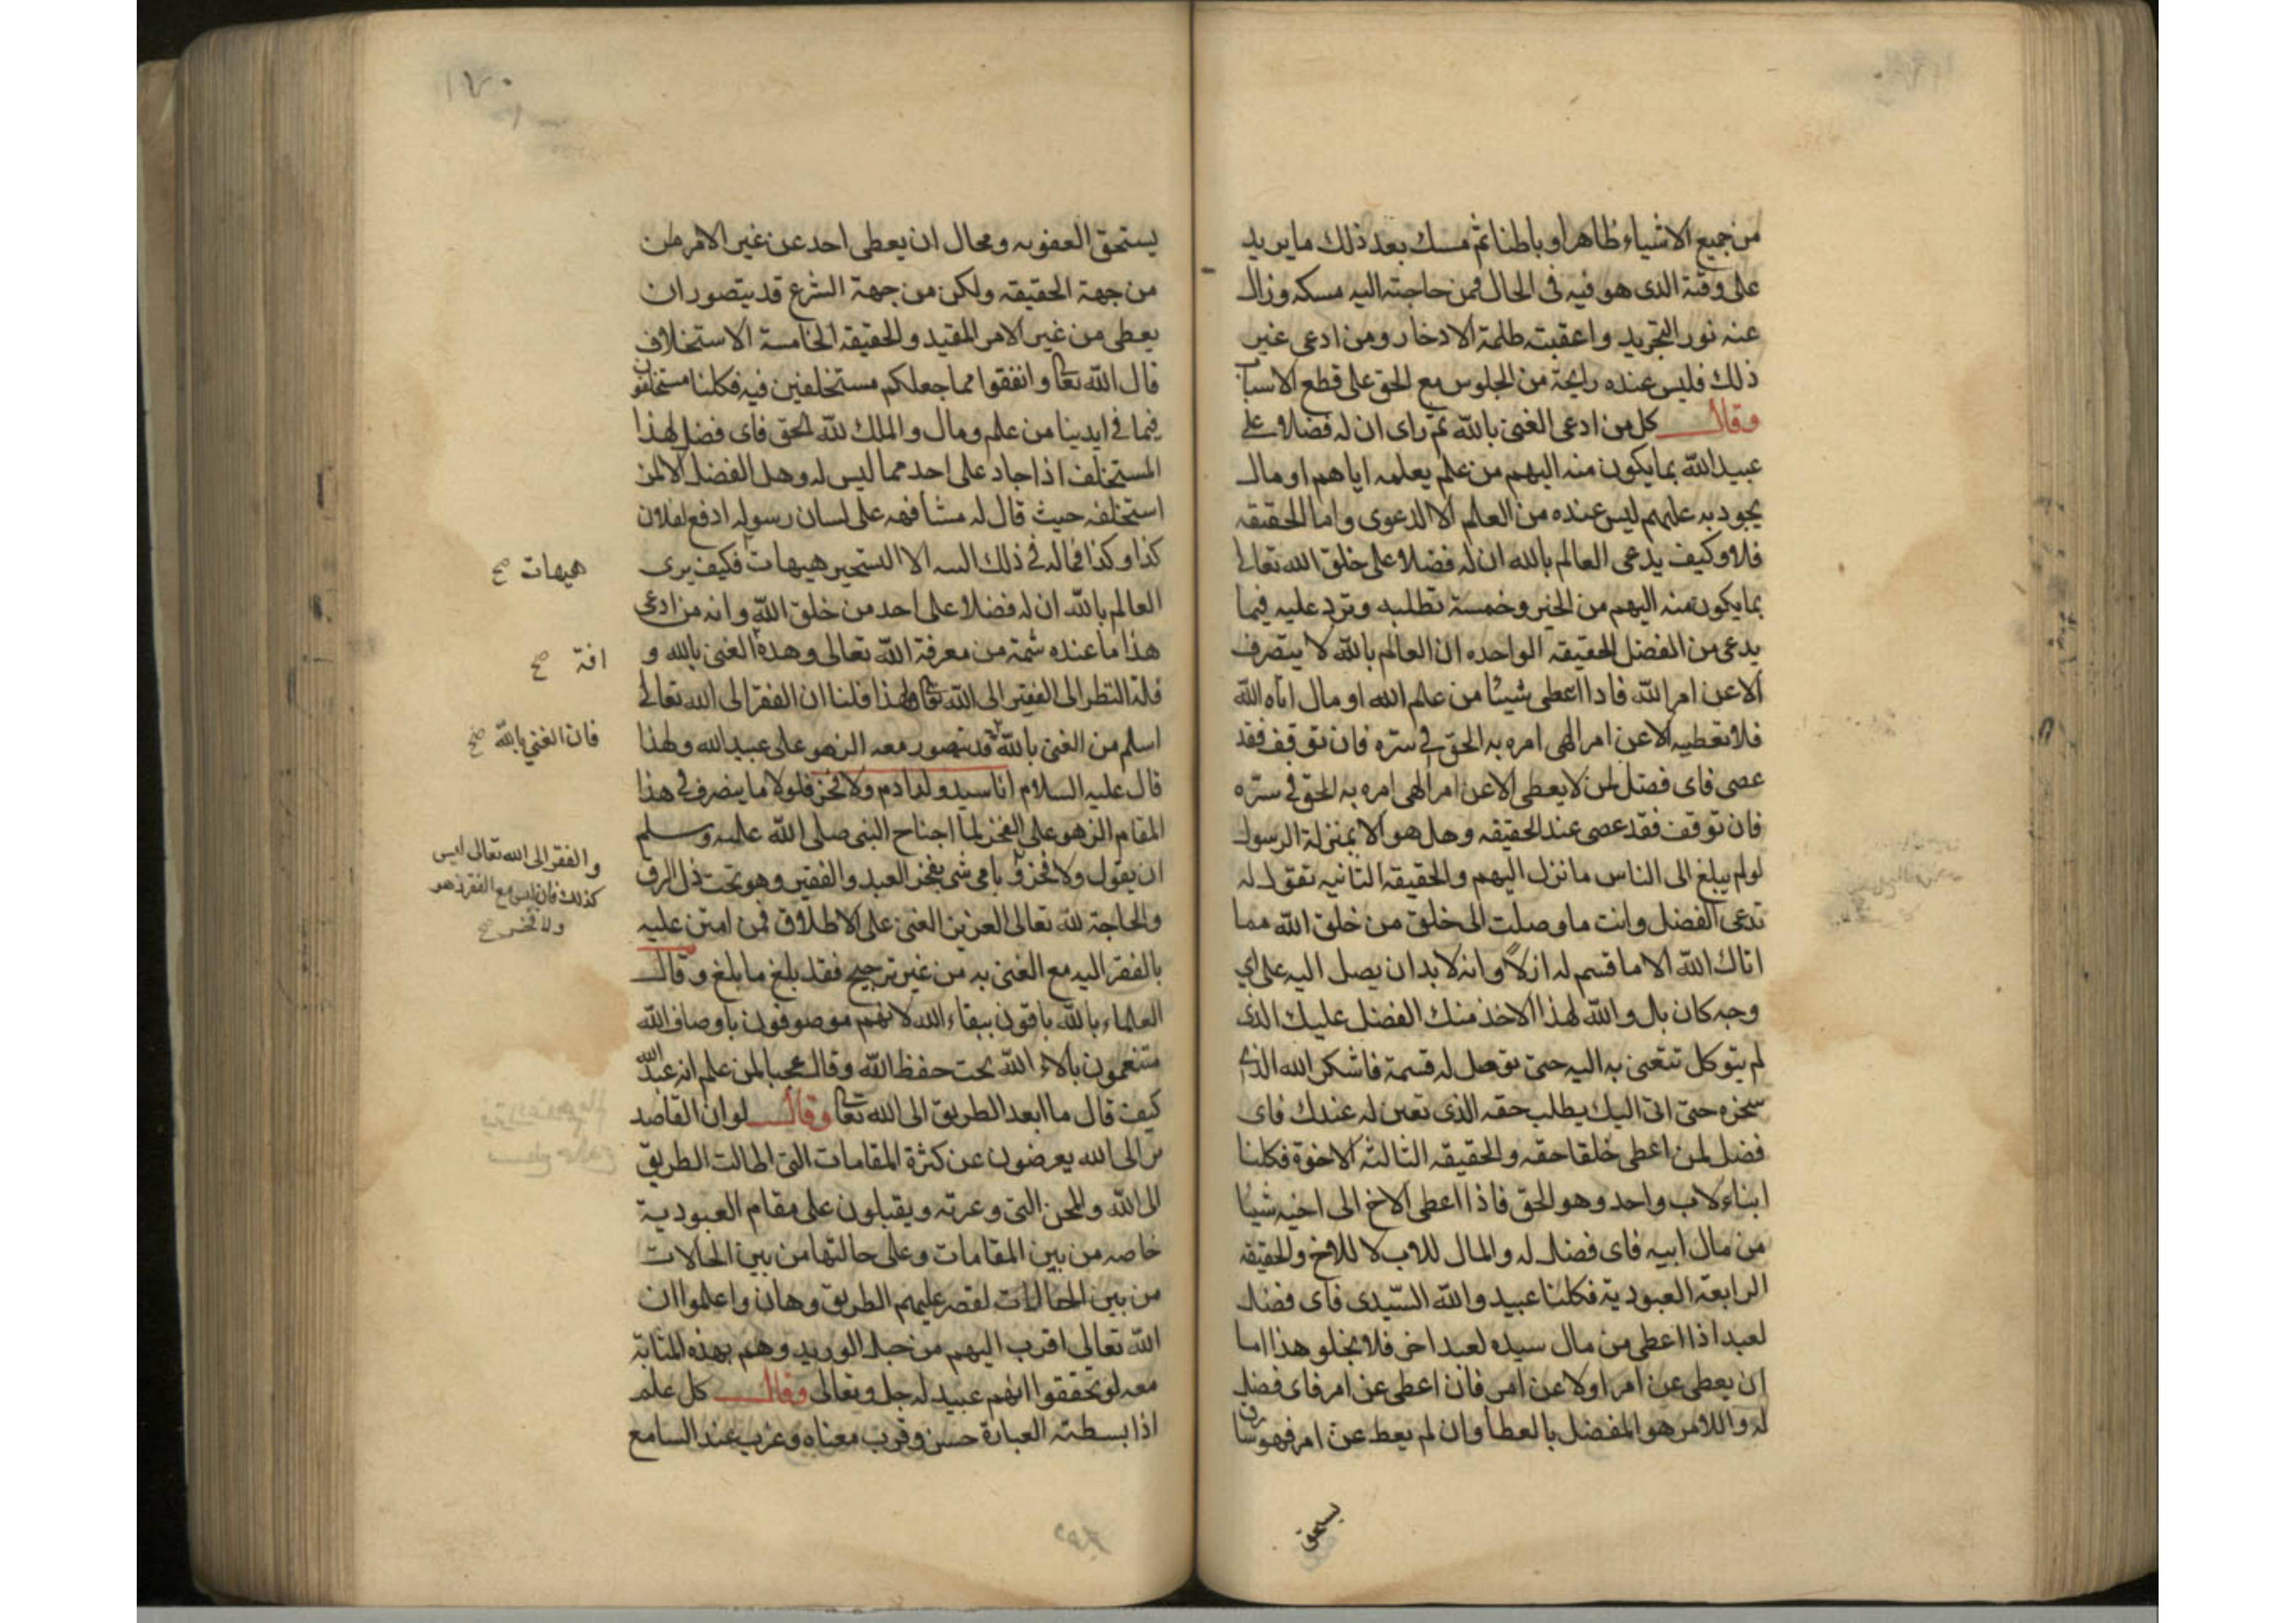 من جميع الاشياء ظاهرا وباطنا ثم مسك بعد ذلك ما يريد
على وقتة الذى هو فيه فى الحال فمن حاجته اليه مسكه وزال
عنه نور التجريد واعقبت طلمة الادخار ومن ادعى غير
ذلك فليس عنده رايحة من الجلوس مع الحق على قطع الاسباب
وقال كل من ادعى الغنى بالله ثم راى ان له فضلا على
عبيد الله بما يكون منه اليهم من علم يعلمه اياهم او مال
يجود به عليهم ليس عنده من العالم الا الدعوى واما الحقيقه
فلا وكيف يدعى العالم بالله ان له فضلا على خلق الله تعالى
بما يكون منه اليهم من الخير وخمسة تطلبه وترد عليه فيما
يدعى من الفضل الحقيقه الواحده ان العالم بالله لا يتصرف
الا عن امر الله فاذا اعطى شيئا من علم الله او مال اتاه الله
فلا تعطيه الا عن امر الهى امره به الحق فى سره فان توقف فقد
عصى فاى فضل لمن لا يعطى الا عن امر الهى امره به الحق فى سره
فان توقف فقد عصى عند الحقيقه وهل هو الا بمنزلة الرسول
لو لم يبلغ الى الناس ما نزل اليهم والحقيقه الثانيه تقول له
تدعى الفضل وانت ما وصلت الى خلق من خلق الله مما
اتاك الله الا ما قسم له ازلا وانه لا بد ان يصل اليه على اي
وجه كان بل والله لهذا الاخذ منك الفضل عليك الذى
لم يتوكل تتعنى به اليه حتى توصل له قسمة فاشكر الله الذى
سخره حتى اتى اليك يطلب حقه الذى تعين له عندك فاى
فضل لمن اعطى خلقا حقه والحقيقه الثالثه الاخوة فكلنا
ابناء لاب واحد وهو الحق فاذا اعطى الاخ الى اخيه شيئا
من مال ابيه فاى فضل له والمال للاب لا للاخ والحقيقه
الرابعة العبودية فكلنا عبيد والله السيدى فاى فضل
لعبد اذا اعطى من مال سيده لعبد اخر فلا يخلو هذا اما
ان يعطى عن امر او لا عن امر فان اعطى عن امر فاى فضل
له واللامر هو المفضل بالعطا وان لم يعط عن امر فهو سارق
يستحق
١٧٠
يستحق العفوبه ومحال ان يعطى احد عن غير الامر من
من جهة الحقيقه ولكن من جهة الشرع قد يتصور ان
يعطى من غير الامر المقيد والحقيقه الخامسة الاستخلاف
قال الله تعا وانفقوا مما جعلكم مستخلفين فيه فكلنا مستخلفون
فيما فى ايدينا من علم ومال والملك لله الحق فاى فضل لهذا
المستخلف اذا جاد على احد مما ليس له وهل الفضل الا لمن
استخلفه حيث قال له مشافهه على لسان رسوله ادفع لفلان
كذا وكذا فماله فى ذلك السه الا التسخير هيهات فكيف يرى
هيهات صح
العالم بالله ان له فضلا على احد من خلق الله وانه من ادعى
هذا ما عنده شمة من معرفة الله تعالى وهذه الغنى بالله و
افة صح
قلة النظر الى الفقير الى الله تعا ولهذا قلنا ان الفقر الى الله تعالى
اسلم من الغنى بالله قد يتصور معه الزهو على عبيد الله ولهذا
فان الغني بالله صح
قال عليه السلام انا سيد ولد ادم ولا فخر فلولا ما يتصرف فى هذا
المقام الزهو على الفخر لما احتاج النبى صلى الله عليه وسلم
والفقر الى الله تعالى ليس
كذلك فان ليس مع الفقر زهو
ولا فخر صح
ان يقول ولا فخر وباى شى يفخر العبد والفقير وهو تحت ذل الرق
والحاجة لله تعالى العزيز الغنى على الاطلاق فمن امتن عليه
بالفقر اليه مع الغنى به من غير ترجيح فقد بلغ ما بلغ وقال
العلماء بالله باقون ببقاء الله لانهم موصوفون باوصاف الله
متنعمون بالاء الله تحت حفظ الله وقال عجبا لمن علم انه عبد الله
كيف قال ما ابعد الطريق الى الله تعا وقال لو ان القاصد
ين الى الله يعرضون عن كثرة المقامات التى اطالت الطريق
الى الله والمحن التى وعرته ويقبلون على مقام العبودية
خاصه من بين المقامات وعلى حالتها من بين الحالات
من بين الحالات لقصر عليهم الطريق وهان واعلموا ان
الله تعالى اقرب اليهم من حبل الوريد وهم بهذه المثابة
معه لو تحققوا انهم عبيد له جل وتعالى وقال كل علم
اذا بسطته العبارة حسن وقرب معناه وعذب عند السامع